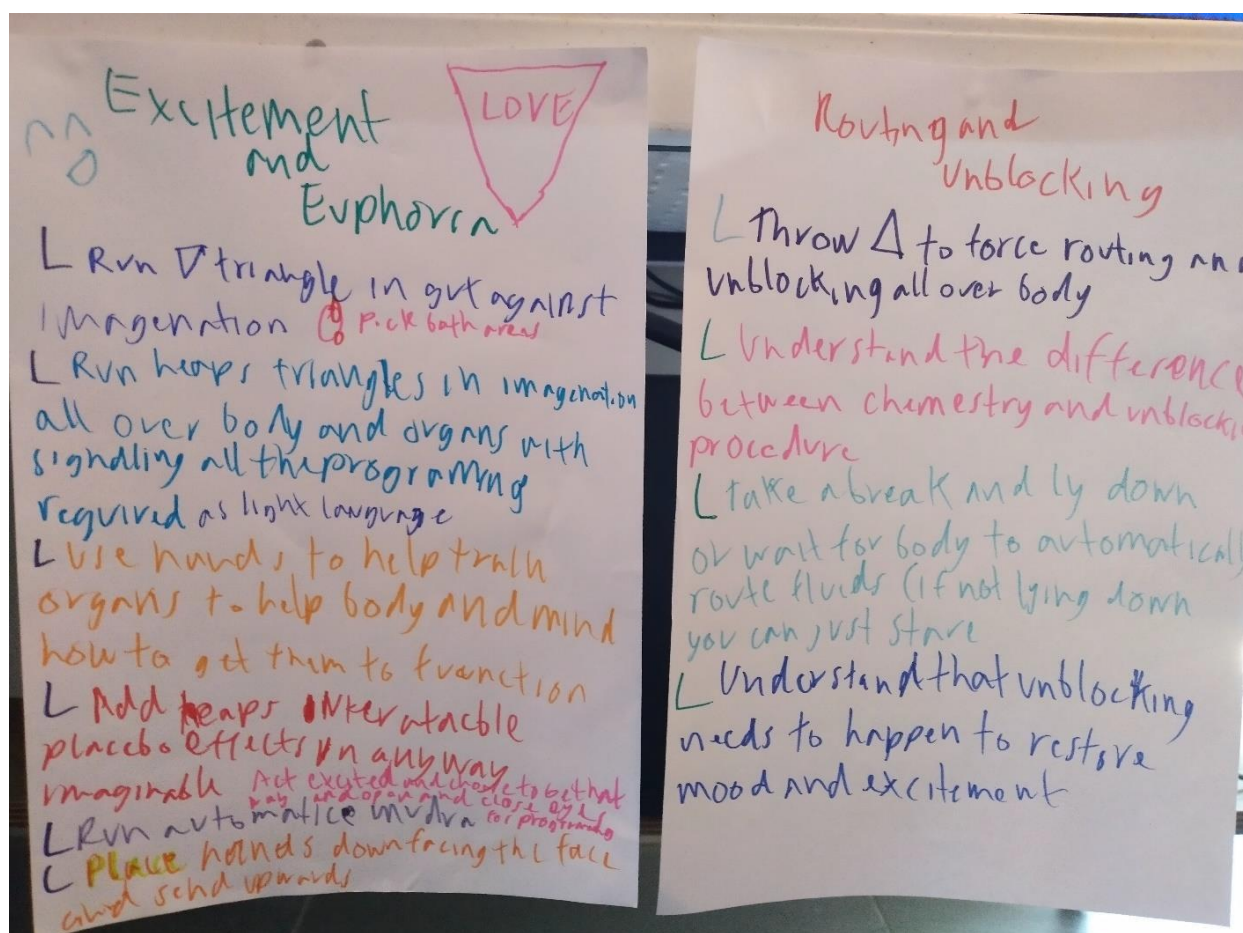 Excitement
and
Euphoria
LOVE
L Run ▽ triangle in gut against
imagenation pick both areas
L Run heaps triangles in imagenation
all over body and organs with
signalling all the programing
required as light language
L Use hands to help train
organs to help body and mind
how to get them to function
L Add heaps
placebo effects in anyway
imaginable Act excited and to be that
way and open and close eyes
for programing
L Run automatice mudra
L Place hands down facing the face
and send upwards
Routing and
Unblocking
L Throw △ to force routing an
unblocking all over body
L Understand the difference
between chemestry and unblocki
procedure
L take a break and ly down
or wait for body to automatical
route fluids (if not lying down
you can just stare
L Understand that unblocking
needs to happen to restore
mood and excitement